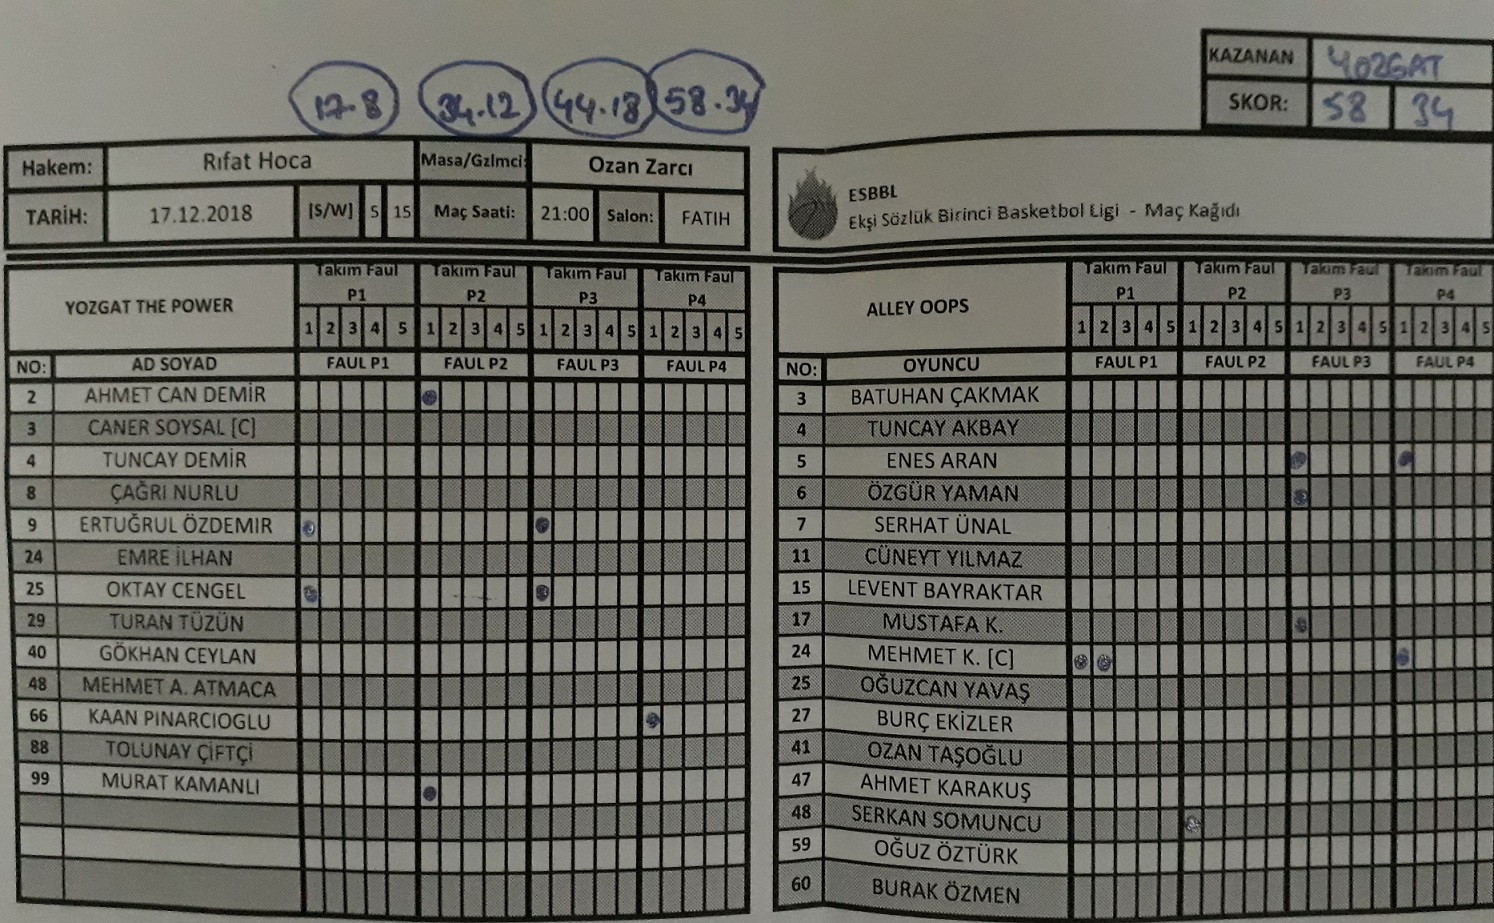 KAZANAN YOZGAT
SKOR: 58 34
17-8 34.12 44.18 58.34
Hakem: Rıfat Hoca Masa/Gzlmci: Ozan Zarcı
TARİH: 17.12.2018 [S/W] 5 15 Maç Saati: 21:00 Salon: FATIH
ESBBL
Ekşi Sözlük Birinci Basketbol Ligi - Maç Kağıdı
YOZGAT THE POWER
Takım Faul P1 Takım Faul P2 Takım Faul P3 Takım Faul P4
1 2 3 4 5 1 2 3 4 5 1 2 3 4 5 1 2 3 4 5
NO: AD SOYAD FAUL P1 FAUL P2 FAUL P3 FAUL P4
2 AHMET CAN DEMİR
3 CANER SOYSAL [C]
4 TUNCAY DEMİR
8 ÇAĞRI NURLU
9 ERTUĞRUL ÖZDEMIR
24 EMRE İLHAN
25 OKTAY CENGEL
29 TURAN TÜZÜN
40 GÖKHAN CEYLAN
48 MEHMET A. ATMACA
66 KAAN PINARCIOGLU
88 TOLUNAY ÇİFTÇİ
99 MURAT KAMANLI
ALLEY OOPS
Takım Faul P1 Takım Faul P2 Takım Faul P3 Takım Faul P4
1 2 3 4 5 1 2 3 4 5 1 2 3 4 5 1 2 3 4 5
NO: OYUNCU FAUL P1 FAUL P2 FAUL P3 FAUL P4
3 BATUHAN ÇAKMAK
4 TUNCAY AKBAY
5 ENES ARAN
6 ÖZGÜR YAMAN
7 SERHAT ÜNAL
11 CÜNEYT YILMAZ
15 LEVENT BAYRAKTAR
17 MUSTAFA K.
24 MEHMET K. [C]
25 OĞUZCAN YAVAŞ
27 BURÇ EKİZLER
41 OZAN TAŞOĞLU
47 AHMET KARAKUŞ
48 SERKAN SOMUNCU
59 OĞUZ ÖZTÜRK
60 BURAK ÖZMEN